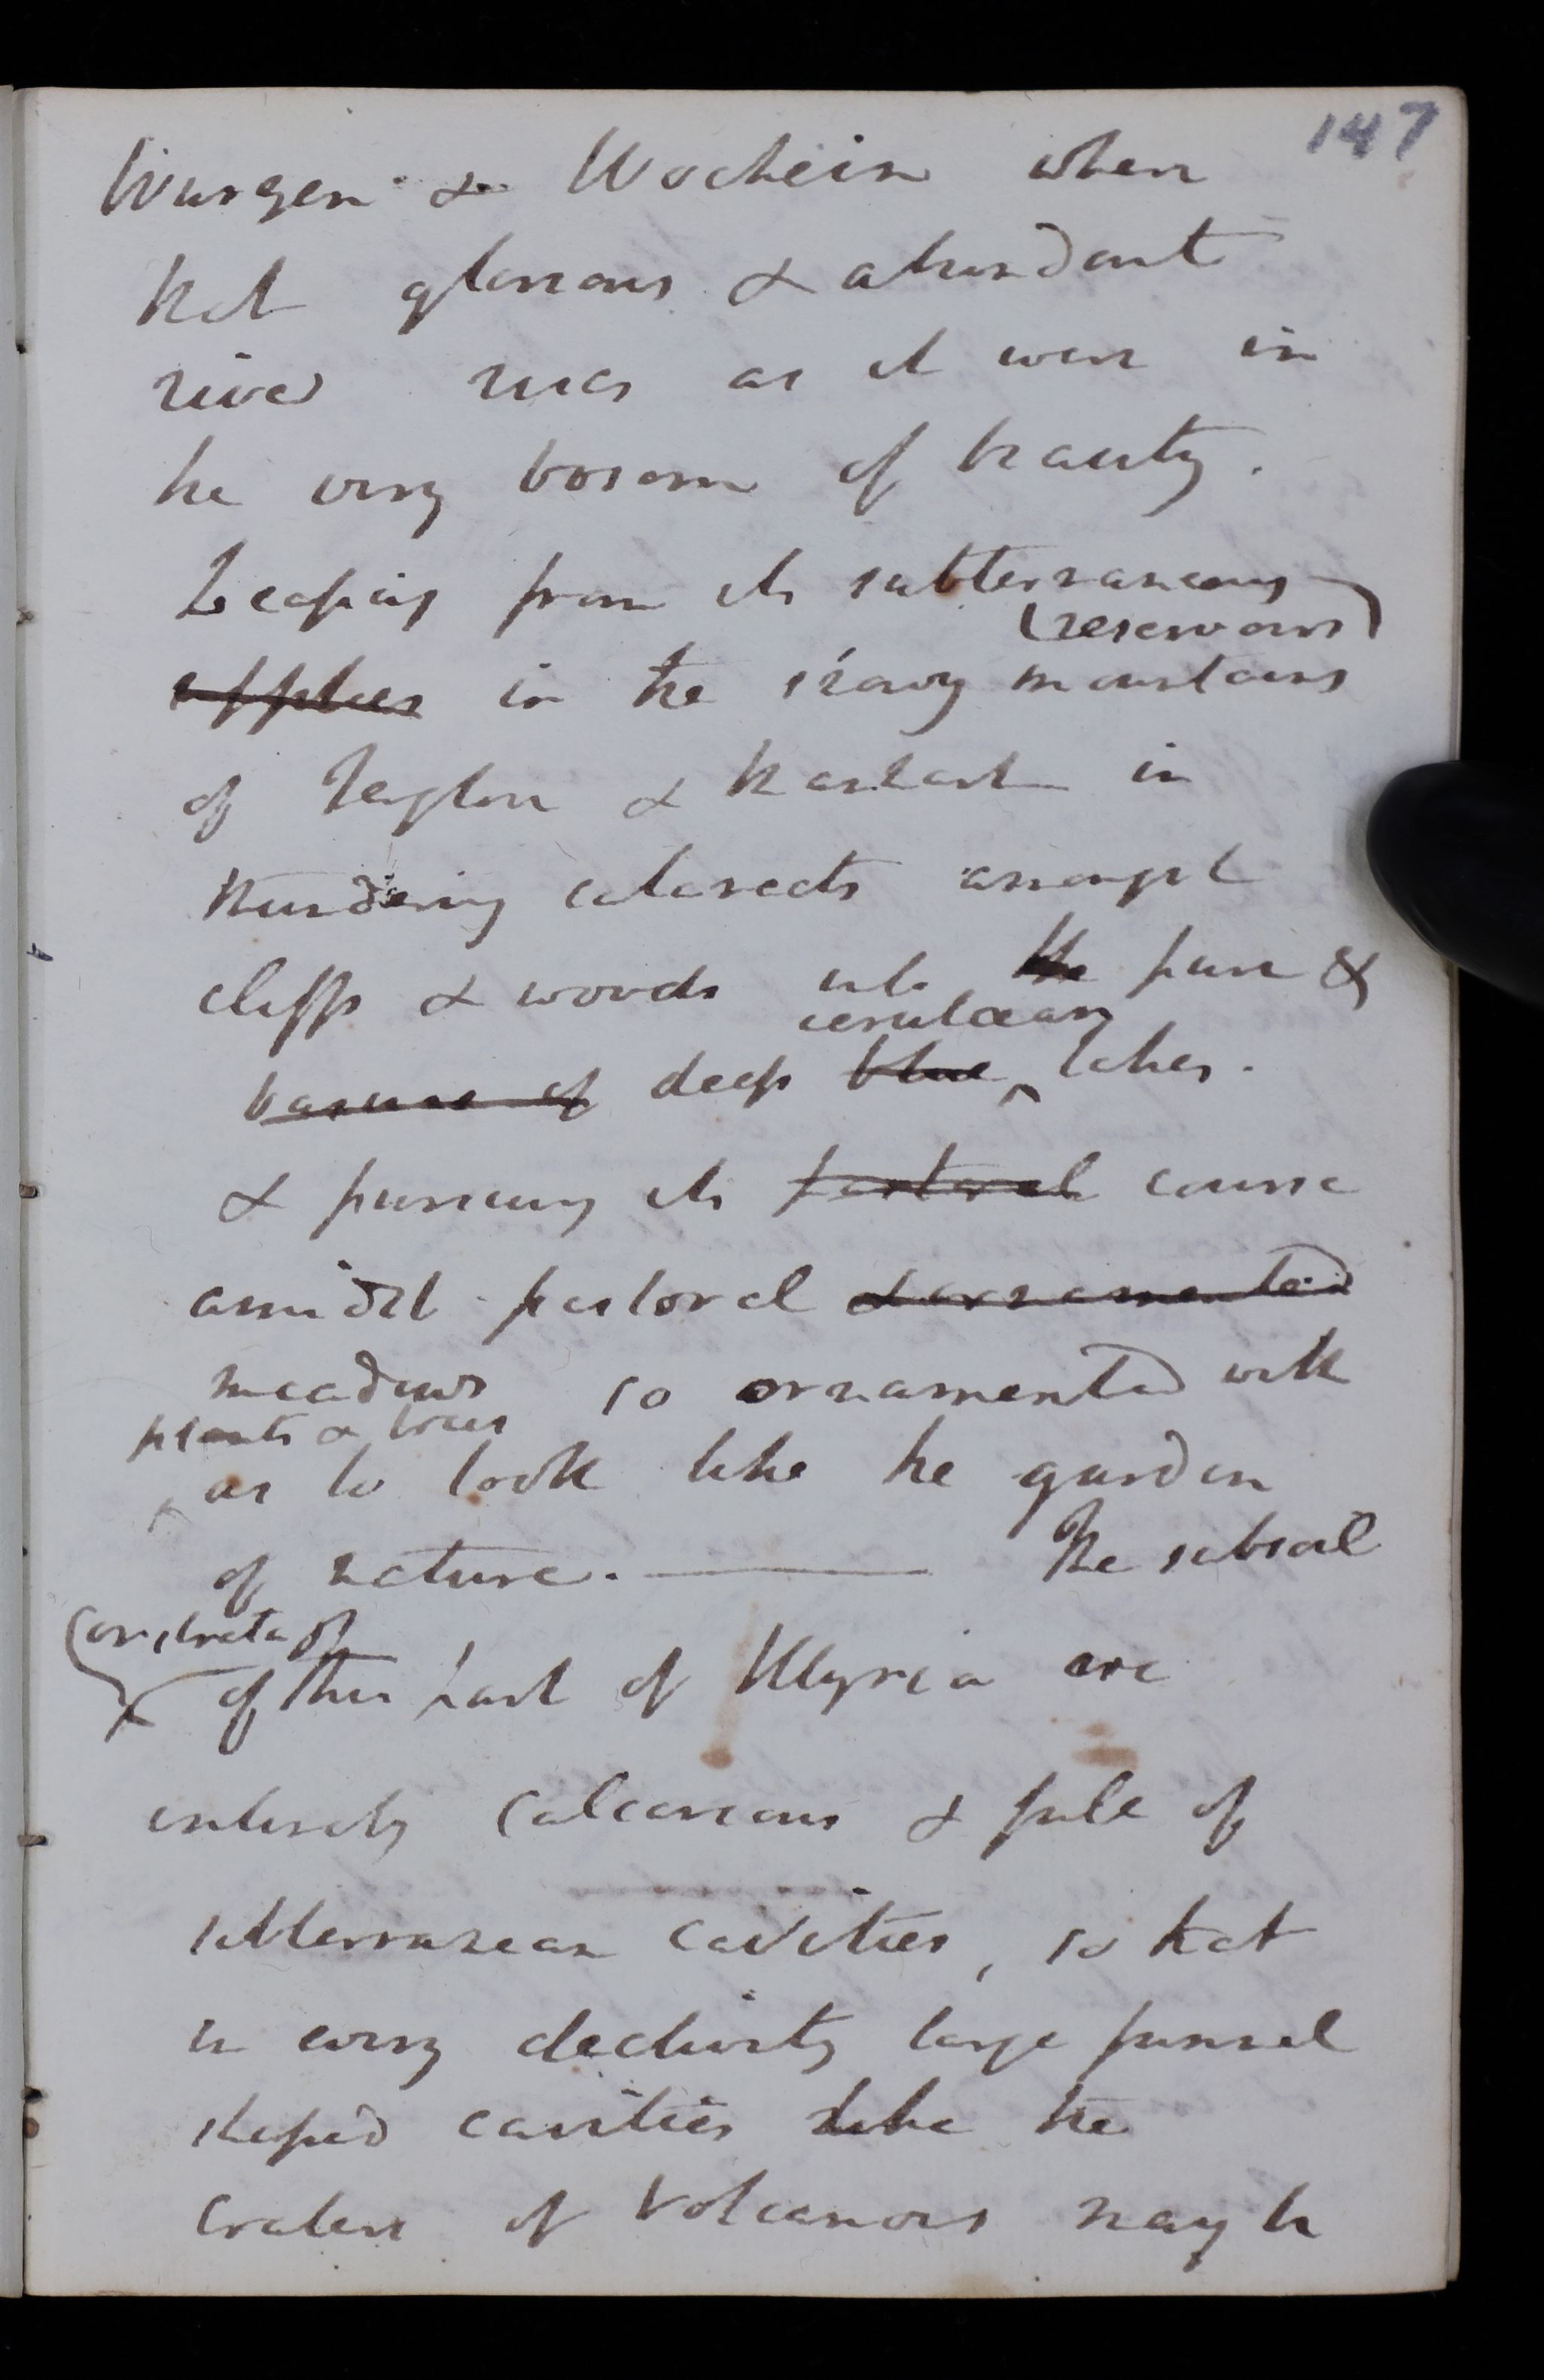 147
Wurzen & Wochein where
that glorious & abundant
river rises as it were in
the very bosom of beauty.
Leaping from its subterraneous
(reservoirs)
supplies in the snowy mountains
of Terglou & Manhart in
thundering cataracts amongst
cliffs & woods into the pure &
cerulæan
basins of deep blue lakes.
& pursuing its pastoral course
amidst pastoral & ornamented
meadows so ornamented with
plants & trees
as to look like the garden
of nature. — The subsoil
or strata of
of this part of Illyria are
entirely calcareous & full of
subterranean cavities, so that
in every declivity large funnel
shaped cavities like the
craters of Volcanoes may be